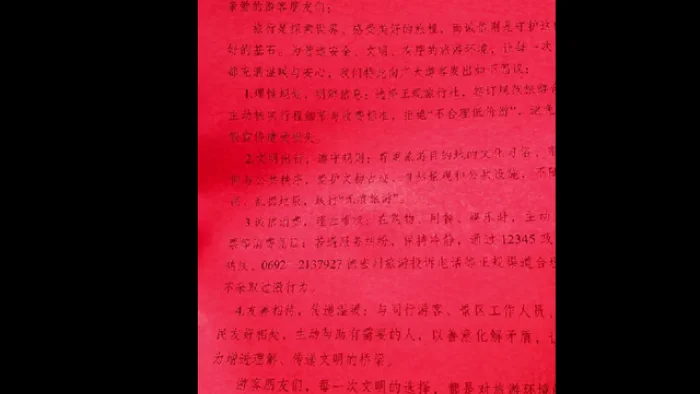 亲爱的游客朋友们：
旅行是探索世界、感受美好的旅程，而诚信则是守护这
好的基石。为营造安全、文明、有序的旅游环境，让每一次
都充满温暖与安心，我们特此向广大游客发出如下倡议：
1.理性规划，明辨信息：选择正规旅行社，签订规范旅游合
主动核实行程细节与收费标准，拒绝“不合理低价游”，避免
2.文明同行，遵守规则：尊重旅游目的地的文化习俗，
护公共秩序，爱护文物古迹、自然景观和公共设施，不随
圾、乱写乱刻，践行“无痕旅游”。
3.诚信消费，理性维权：在购物、用餐、娱乐时，主动
票等消费凭证；若遇服务纠纷，保持冷静，通过 12345 政
热线、0692—2137927 德宏州旅游投诉电话等正规渠道合
不采取过激行为。
4.友善相待，传递温暖：与同行游客、景区工作人员、
民友好相处，主动帮助有需要的人，以善意化解矛盾，让
为增进理解、传递文明的桥梁。
游客朋友们，每一次文明的选择，都是对旅游环境的